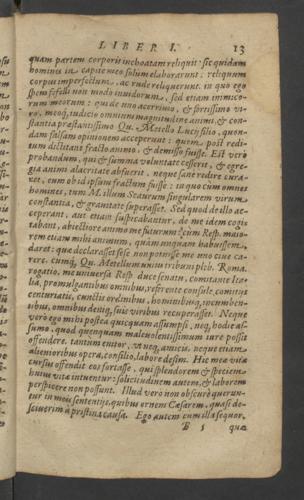 LIBER I. 13
quam partem corporis inchoatam reliquit: sic quidam
homines in capite meo solum elaborarunt: reliquum
corpus imperfectum, ac rude reliquerunt. in quo ego
spem fefelli non modo inuidorum, sed etiam inimico-
rum meorum: qui de uno acerrimo, & fortissimo vi-
ro, meoq́; iudicio omnium magnitudine animi, & con-
stantia præstantissimo Qu. Metello Lucij filio, quon-
dam falsam opinionem acceperunt: quem post redi-
tum dictitant fracto animo, & demisso fuisse. Est vero
probandum, qui & summa voluntate cesserit, & egre-
gia animi alacritate abfuerit, neque sane redire cura-
rit, eum ob id ipsum fractum fuisse: in quo cum omnes
homines, tum M. illum Scaurum singularem virum
constantia, & grauitate superasset. Sed quod de illo ac-
ceperant, aut etiam suspicabantur, de me idem cogi-
tabant, abiectiore animo me futurum: cum Resp. maio-
rem etiam mihi animum, quàm unquam habuissem,
daret: que declarasset sese non potuisse me uno ciue ca-
rere. cumq́; Qu. Metellum unius tribuni pleb. Roma.
rogatio, me uniuersa Resp. duce senatu, comitante Ita-
lia, promulgantibus omnibus, referente consule, comitiis
centuriatis, cunctis ordinibus, hominibus, incumben-
tibus, omnibus deniq́; suis viribus recuperasset. Neque
vero ego mihi postea quicquam assumpsi, neq́; hodie as-
sumo, quod quenquam maleuolentissimum iure possit
offendere. tantum enitor, ut neq́; amicis, neque etiam
alienioribus opera, consilio, labore desim. Hic meæ vitæ
cursus offendit eos fortasse, qui splendorem & speciem
huius vitæ intuentur: solicitudinem autem, & laborem
perspicere non possunt. Illud vero non obscurè querun-
tur in meis sententijs, quibus ornem Cæsarem, quasi de-
sciuerim à pristina causa. Ego autem cum illa sequor,
B 5 quæ